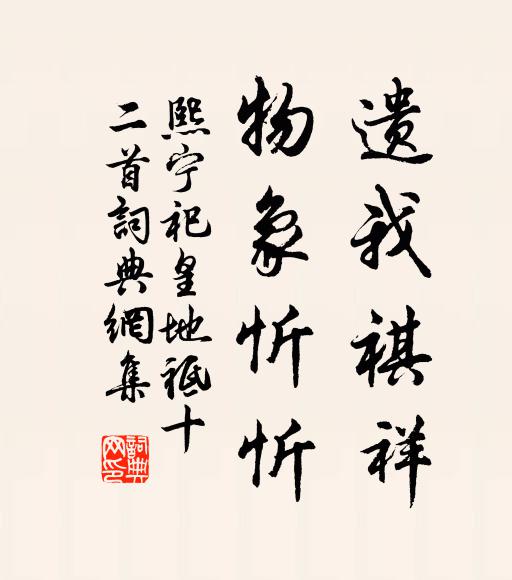 遗我祺祥
物象忻忻
熙宁祀皇地祇十
二首詞典網集
詞典
网印